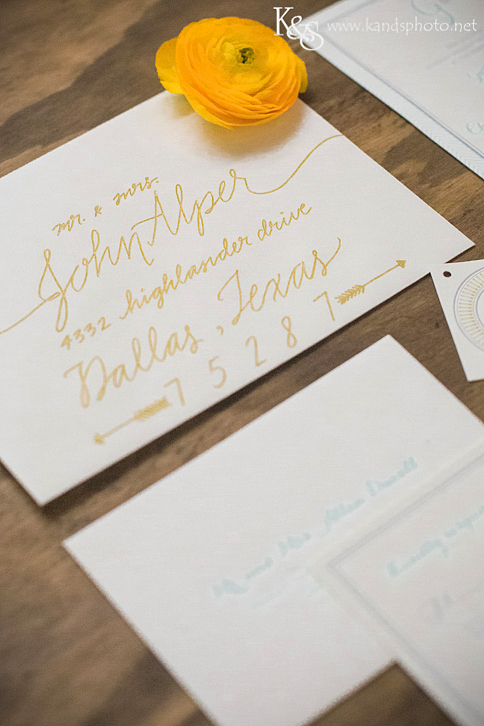 K&S www.kandsphoto.net
mr. & mrs.
John Alper
4332 highlander drive
Dallas, Texas
75287